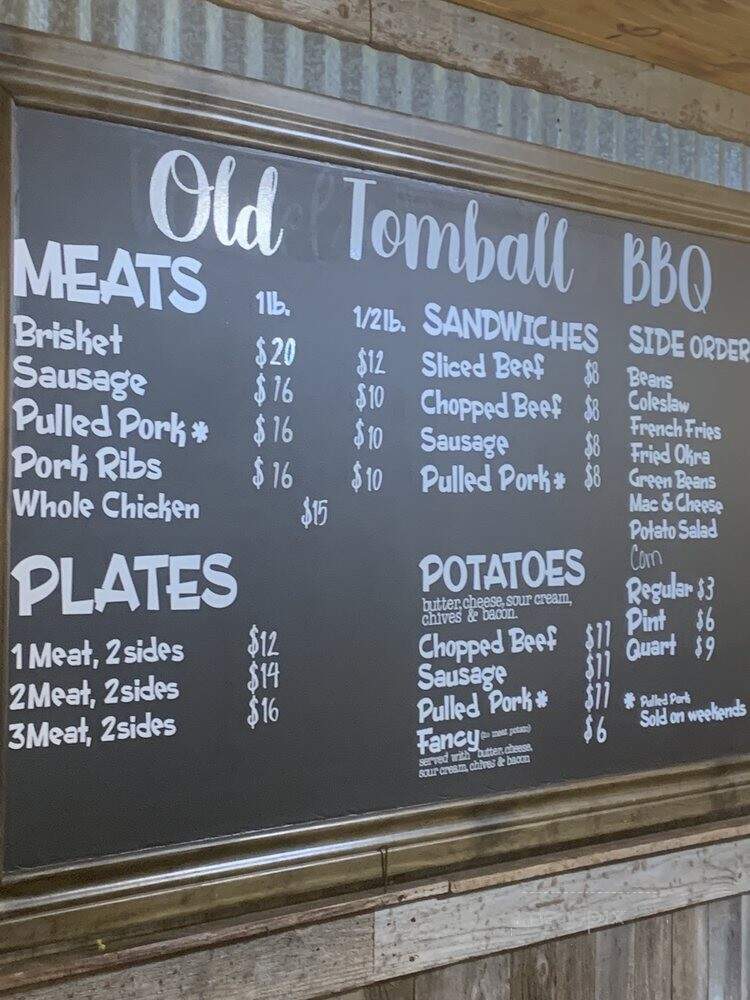 Old Tomball BBQ
MEATS
1lb.
1/2lb.
Brisket $20 $12
Sausage $16 $10
Pulled Pork* $16 $10
Pork Ribs $16 $10
Whole Chicken $15
PLATES
1 Meat, 2 sides $12
2 Meat, 2 sides $14
3 Meat, 2 sides $16
SANDWICHES
Sliced Beef $8
Chopped Beef $8
Sausage $8
Pulled Pork* $8
POTATOES
butter, cheese, sour cream,
chives & bacon.
Chopped Beef $11
Sausage $11
Pulled Pork* $11
Fancy (no meat potato) $6
served with butter, cheese,
sour cream, chives & bacon
SIDE ORDER
Beans
Coleslaw
French Fries
Fried Okra
Green Beans
Mac & Cheese
Potato Salad
Corn
Regular $3
Pint $6
Quart $9
* Pulled Pork
Sold on weekends